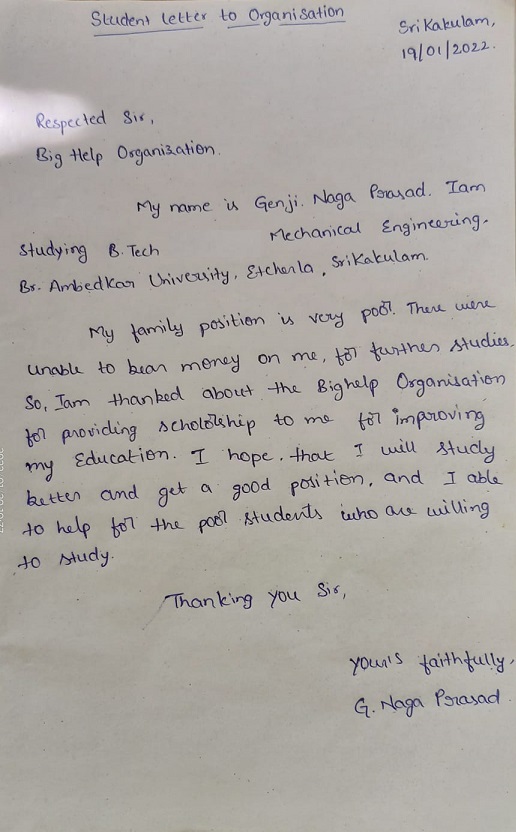 Student Letter to Organisation
Srikakulam,
19/01/2022.
Respected Sir,
Big Help Organization.
My name is Genji. Naga Prasad. Iam
studying B.Tech Mechanical Engineering.
Br. Ambedkar University, Etcherla, Srikakulam.
My family position is very poor. There were
unable to bear money on me, for further studies.
So, Iam thanked about the Bighelp Organisation
for providing scholorship to me for improving
my Education. I hope, that I will study
better and get a good position, and I able
to help for the poor students who are willing
to study.
Thanking you Sir,
your's faithfully,
G. Naga Prasad.